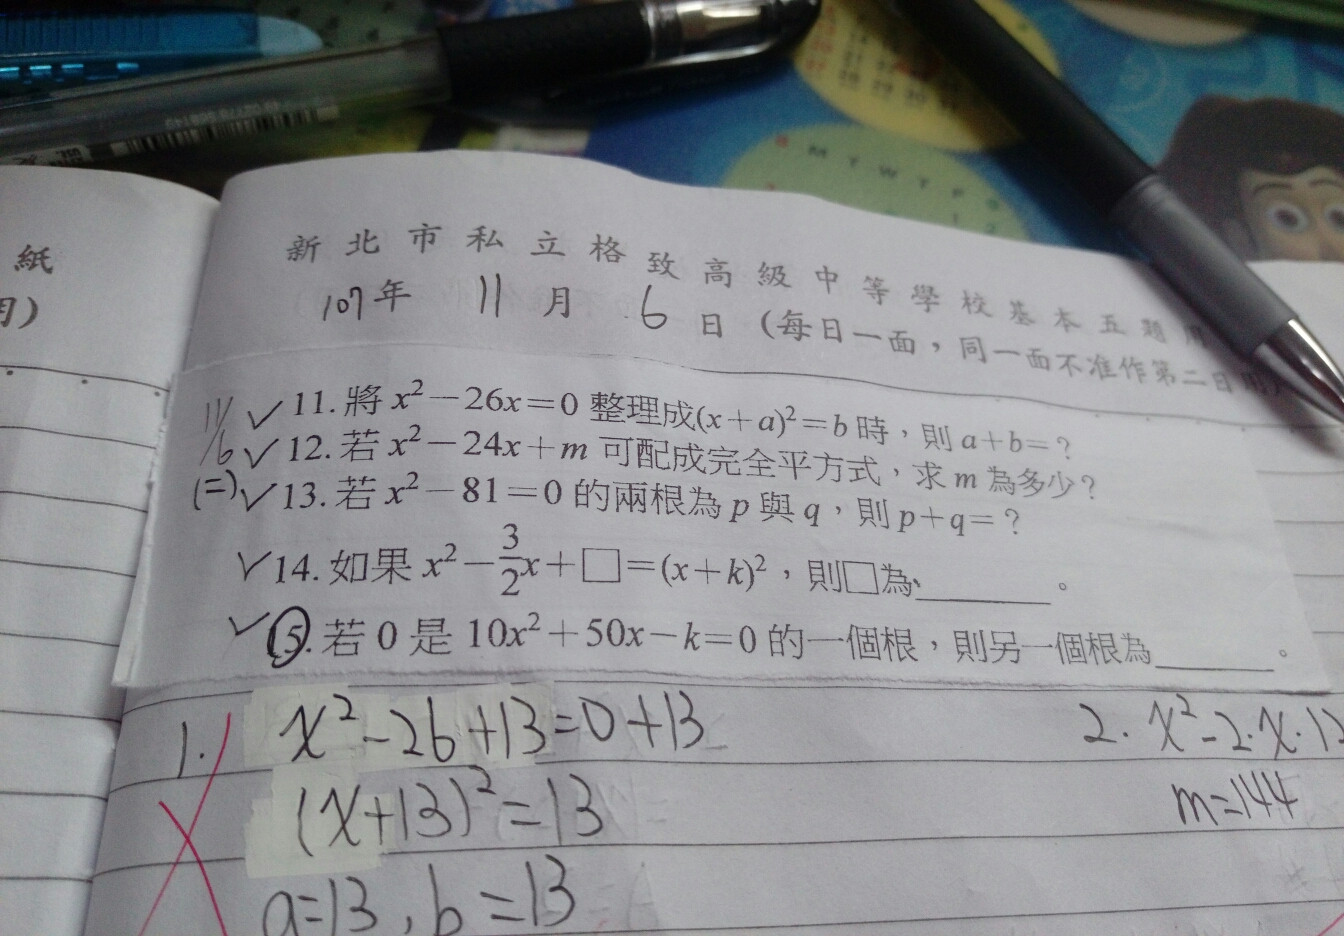 紙
用)
M T W T F S
新北市私立格致高級中等學校基本五題用
107年 11月 6日 (每日一面,同一面不准作第二日用)
11/6 (二)
✓ 11. 將 x²-26x=0 整理成(x+a)²=b 時,則 a+b=?
✓ 12. 若 x²-24x+m 可配成完全平方式,求 m 為多少?
✓ 13. 若 x²-81=0 的兩根為 p 與 q,則 p+q=?
✓ 14. 如果 x²-3/2x+□=(x+k)²,則□為、________。
✓ 15. 若 0 是 10x²+50x-k=0 的一個根,則另一個根為________。
1. x²-26+13=0+13
(x+13)²=13
a=13, b=13
2. x²-2·x·12
m=144